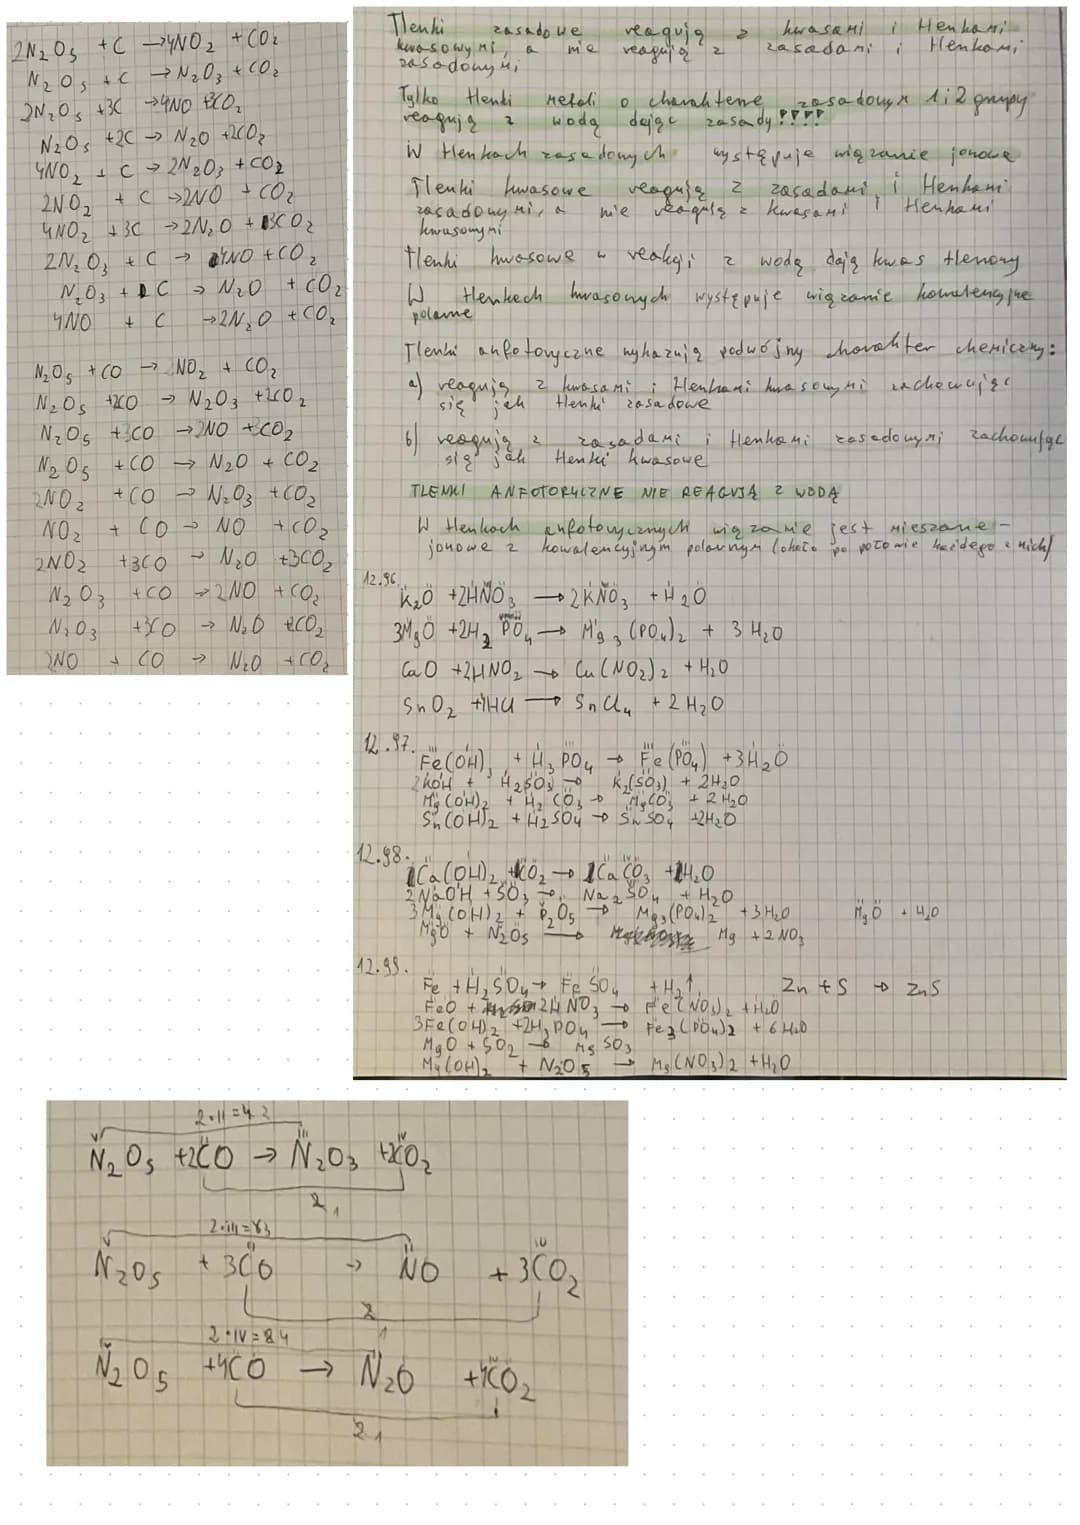 2N₂O₅ + C → 4NO₂ + CO₂
N₂O₅ + C → N₂O₃ + CO₂
2N₂O₅ + 3C → 4NO + 3CO₂
N₂O₅ + 2C → N₂O + 2CO₂
4NO₂ + C → 2N₂O₃ + CO₂
2NO₂ + C → 2NO + CO₂
4NO₂ + 3C → 2N₂O + 3CO₂
2N₂O₃ + C → 4NO + CO₂
N₂O₃ + C → N₂O + CO₂
4NO + C → 2N₂O + CO₂
N₂O₅ + CO → NO₂ + CO₂
N₂O₅ + 2CO → N₂O₃ + 2CO₂
N₂O₅ + 3CO → 2NO + 3CO₂
N₂O₅ + CO → N₂O + CO₂
2NO₂ + CO → N₂O₃ + CO₂
NO₂ + CO → NO + CO₂
2NO₂ + 3CO → N₂O + 3CO₂
N₂O₃ + CO → 2NO + CO₂
N₂O₃ + CO → N₂O CO₂
2NO + CO → N₂O + CO₂
Tlenki zasadowe reagują z kwasami i tlenkami
kwasowymi, a nie reagują z zasadami i tlenkami
zasadowymi
Tylko tlenki metali o charakterze zasadowym 1 i 2 grupy
reagują z wodą dając zasady!!!!
W tlenkach zasadowych występuje wiązanie jonowe
Tlenki kwasowe reagują z zasadami i tlenkami
zasadowymi, a nie reagują z kwasami i tlenkami
kwasowymi
Tlenki kwasowe w reakcji z wodą dają kwas tlenowy
W tlenkach kwasowych występuje wiązanie kowalencyjne
polarne
Tlenki amfoteryczne wykazują podwójny charakter chemiczny:
a) reagują z kwasami i tlenkami kwasowymi zachowując
się jak tlenki zasadowe
b) reagują z zasadami i tlenkami zasadowymi zachowując
się jak tlenki kwasowe
TLENKI AMFOTERYCZNE NIE REAGUJĄ Z WODĄ
W tlenkach amfoterycznych wiązanie jest mieszane -
jonowe z kowalencyjnym polarnym (około po połowie każdego z nich)
12.96.
K₂O + 2HNO₃ → 2KNO₃ + H₂O
3MgO + 2H₃PO₄ → Mg₃(PO₄)₂ + 3H₂O
CaO + 2HNO₂ → Ca(NO₂)₂ + H₂O
SnO₂ + 4HCl → SnCl₄ + 2H₂O
12.97.
Fe(OH)₃ + H₃PO₄ → Fe(PO₄) + 3H₂O
2KOH + H₂SO₃ → K₂(SO₃) + 2H₂O
Mg(OH)₂ + H₂CO₃ → MgCO₃ + 2H₂O
Sn(OH)₂ + H₂SO₄ → SnSO₄ + 2H₂O
12.98.
1Ca(OH)₂ + 1CO₂ → 1CaCO₃ + 1H₂O
2NaOH + SO₃ → Na₂SO₄ + H₂O
3Mg(OH)₂ + P₂O₅ → Mg₃(PO₄)₂ + 3H₂O MgO + H₂O
MgO + N₂O₅ → Mg + 2NO₃
12.99.
Fe + H₂SO₄ → FeSO₄ + H₂↑ Zn + S → ZnS
FeO + 2HNO₃ → Fe(NO₃)₂ + H₂O
3Fe(OH)₂ + 2H₃PO₄ → Fe₃(PO₄)₂ + 6H₂O
MgO + SO₂ → MgSO₃
Mg(OH)₂ + N₂O₅ → Mg(NO₃)₂ + H₂O
2·II=4 2
N₂O₅ + 2CO → N₂O₃ + 2CO₂
2 1
2·III=6 3
N₂O₅ + 3CO → NO + 3CO₂
2 1
2·IV=8 4
N₂O₅ + 4CO → N₂O + 4CO₂
2 1